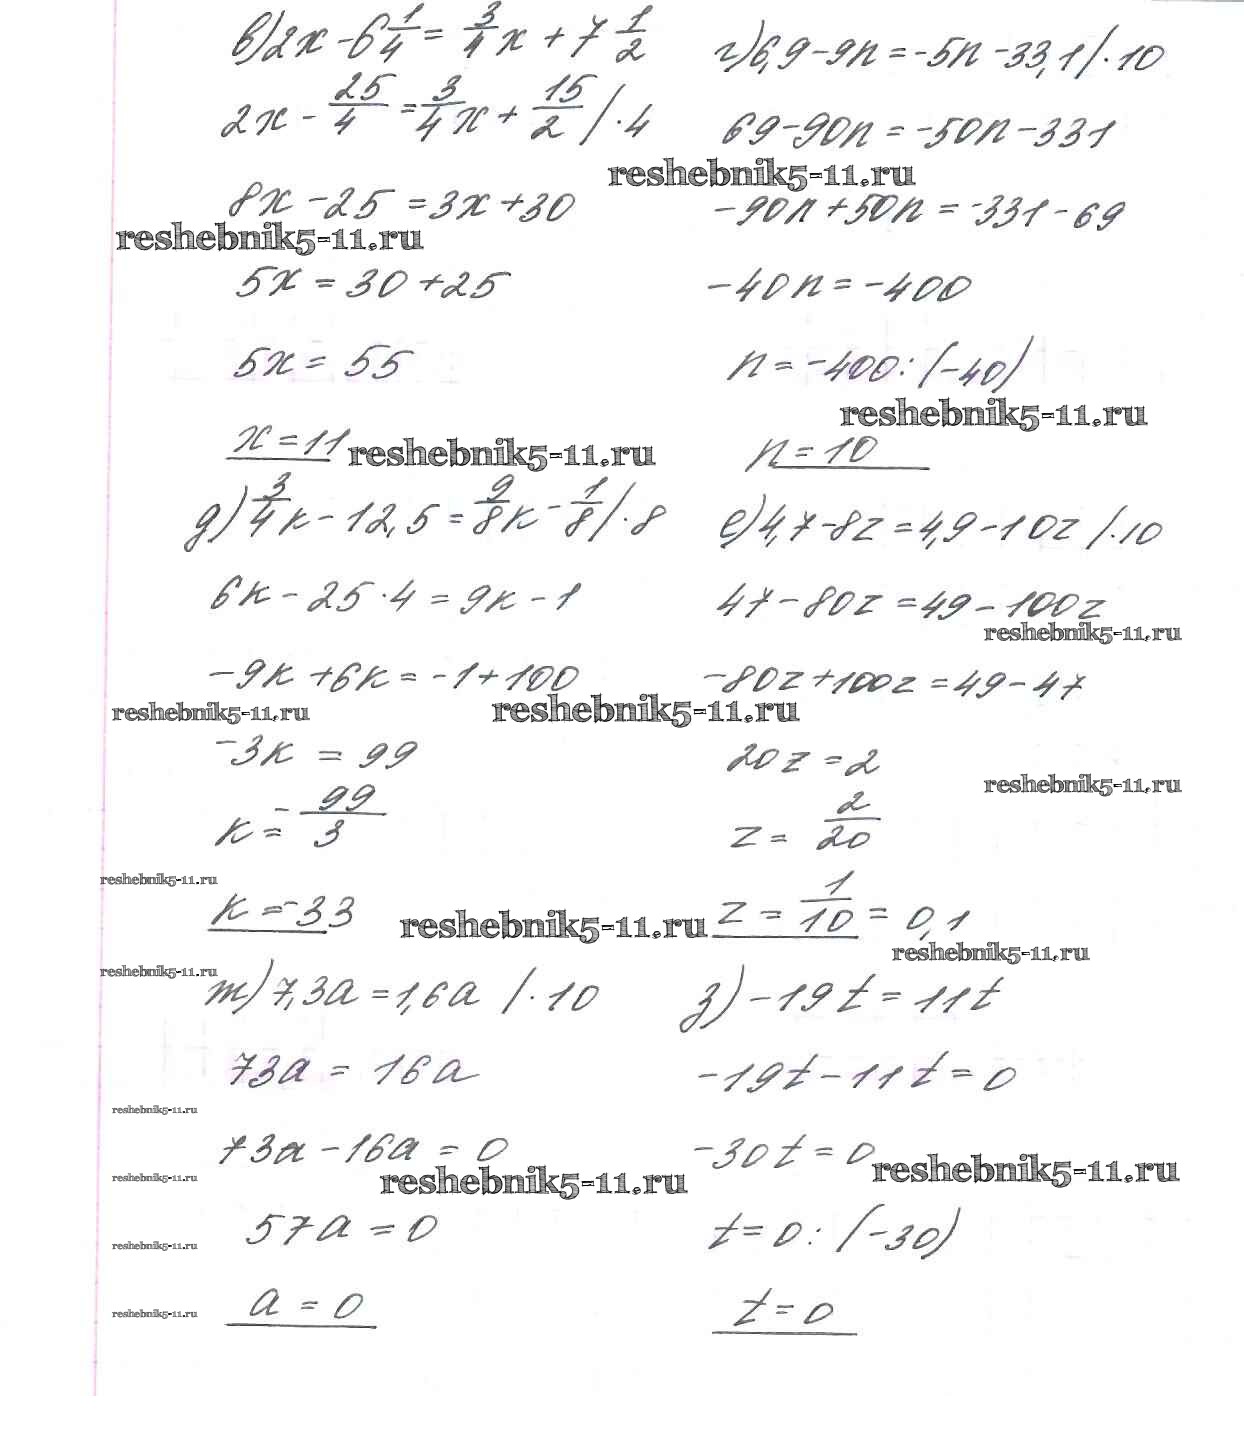 в) 2x - 6 1/4 = 3/4 x + 7 1/2
2x - 25/4 = 3/4 x + 15/2 / · 4
8x - 25 = 3x + 30
reshebnik5-11.ru
5x = 30 + 25
5x = 55
x = 11
reshebnik5-11.ru
г) 6,9 - 9n = -5n - 33,1 / · 10
69 - 90n = -50n - 331
reshebnik5-11.ru
-90n + 50n = -331 - 69
-40n = -400
n = -400 : (-40)
reshebnik5-11.ru
n = 10
д) 3/4 к - 12,5 = 9/8 к - 1/8 / · 8
6к - 25 · 4 = 9к - 1
-9к + 6к = -1 + 100
reshebnik5-11.ru
reshebnik5-11.ru
-3к = 99
к = - 99/3
reshebnik5-11.ru
к = -33
reshebnik5-11.ru
е) 4,7 - 8z = 4,9 - 10z / · 10
47 - 80z = 49 - 100z
reshebnik5-11.ru
-80z + 100z = 49 - 47
20z = 2
reshebnik5-11.ru
z = 2/20
z = 1/10 = 0,1
reshebnik5-11.ru
reshebnik5-11.ru
ж) 7,3a = 1,6a / · 10
73a = 16a
reshebnik5-11.ru
73a - 16a = 0
reshebnik5-11.ru
reshebnik5-11.ru
57a = 0
reshebnik5-11.ru
a = 0
reshebnik5-11.ru
з) -19t = 11t
-19t - 11t = 0
-30t = 0
reshebnik5-11.ru
t = 0 : (-30)
t = 0